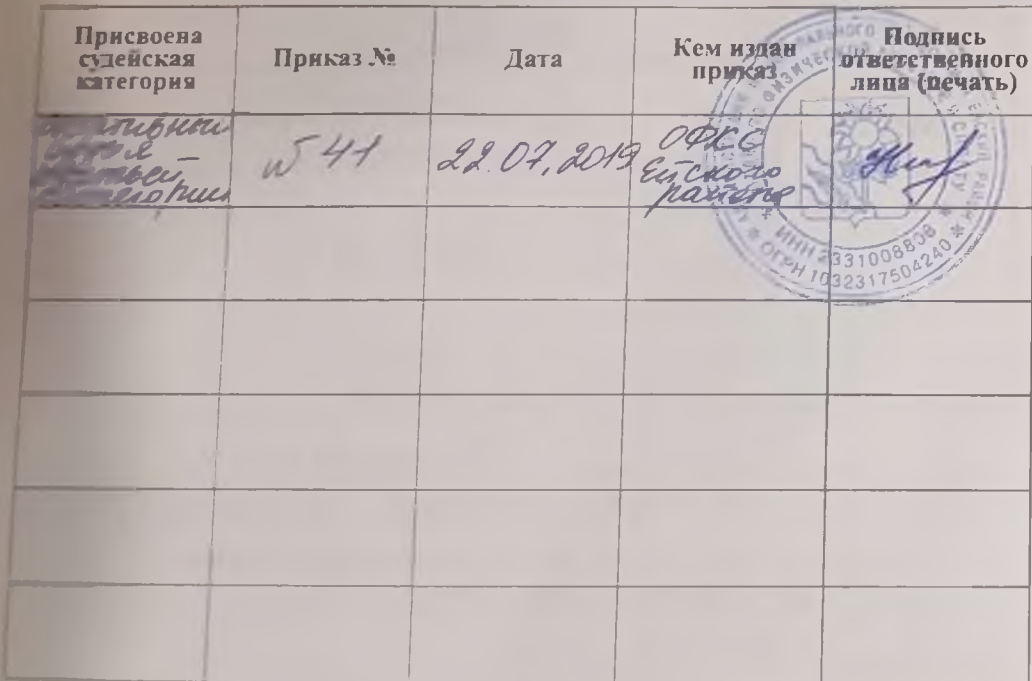 Присвоена судейская категория
Приказ №
Дата
Кем издан приказ
Подпись ответственного лица (печать)
судья
третьей
категории
№ 41
22.07.2019
ОФКС
Ейского
района
ИНН 2331008808
ОГРН 1032317504240